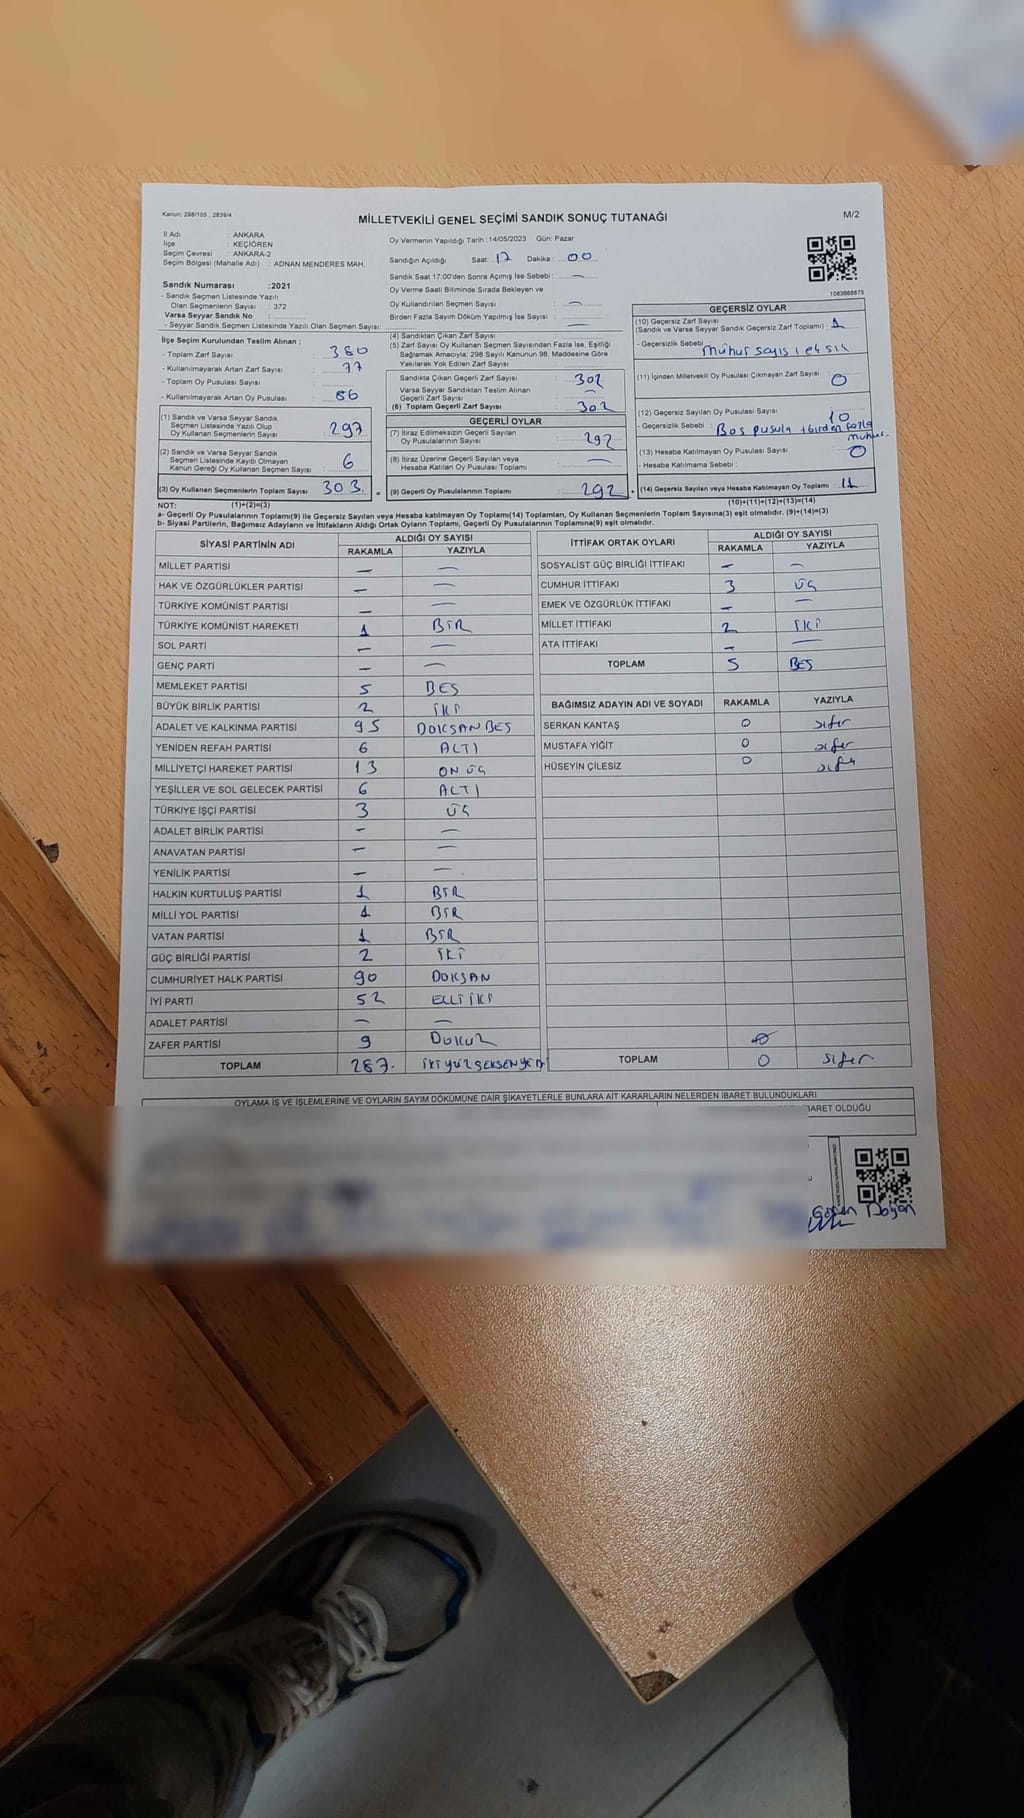 Kanun: 298/105 , 2839/4
MİLLETVEKİLİ GENEL SEÇİMİ SANDIK SONUÇ TUTANAĞI
M/2
İl Adı : ANKARA
İlçe : KEÇİÖREN
Seçim Çevresi : ANKARA-2
Seçim Bölgesi (Mahalle Adı) : ADNAN MENDERES MAH.
Oy Vermenin Yapıldığı Tarih :14/05/2023 Gün: Pazar
Sandığın Açıldığı Saat: 17 Dakika : 00
Sandık Saat 17:00'den Sonra Açılmış İse Sebebi : —
Oy Verme Saati Bitiminde Sırada Bekleyen ve
Oy Kullandırılan Seçmen Sayısı : —
Birden Fazla Sayım Döküm Yapılmış İse Sayısı : —
1083668875
Sandık Numarası :2021
- Sandık Seçmen Listesinde Yazılı
Olan Seçmenlerin Sayısı : 372
Varsa Seyyar Sandık No :
- Seyyar Sandık Seçmen Listesinde Yazılı Olan Seçmen Sayısı:
İlçe Seçim Kurulundan Teslim Alınan ;
- Toplam Zarf Sayısı : 380
- Kullanılmayarak Artan Zarf Sayısı : 77
- Toplam Oy Pusulası Sayısı :
- Kullanılmayarak Artan Oy Pusulası : 86
(1) Sandık ve Varsa Seyyar Sandık
Seçmen Listesinde Yazılı Olup
Oy Kullanan Seçmenlerin Sayısı : 297
(2) Sandık ve Varsa Seyyar Sandık
Seçmen Listesinde Kayıtlı Olmayan
Kanun Gereği Oy Kullanan Seçmen Sayısı : 6
(3) Oy Kullanan Seçmenlerin Toplam Sayısı : 303
(1)+(2)=(3)
(4) Sandıktan Çıkan Zarf Sayısı :
(5) Zarf Sayısı Oy Kullanan Seçmen Sayısından Fazla İse, Eşitliği
Sağlamak Amacıyla; 298 Sayılı Kanunun 98. Maddesine Göre
Yakılarak Yok Edilen Zarf Sayısı :
Sandıkta Çıkan Geçerli Zarf Sayısı : 302
Varsa Seyyar Sandıktan Teslim Alınan
Geçerli Zarf Sayısı : —
(6) Toplam Geçerli Zarf Sayısı : 302
GEÇERLİ OYLAR
(7) İtiraz Edilmeksizin Geçerli Sayılan
Oy Pusulalarının Sayısı : 292
(8) İtiraz Üzerine Geçerli Sayılan veya
Hesaba Katılan Oy Pusulası Toplamı : —
= (9) Geçerli Oy Pusulalarının Toplamı : 292 +
GEÇERSİZ OYLAR
(10) Geçersiz Zarf Sayısı
(Sandık ve Varsa Seyyar Sandık Geçersiz Zarf Toplamı) : 1
- Geçersizlik Sebebi : mühür sayısı eksik
(11) İçinden Milletvekili Oy Pusulası Çıkmayan Zarf Sayısı : 0
(12) Geçersiz Sayılan Oy Pusulası Sayısı : 10
- Geçersizlik Sebebi : Boş pusula +birden fazla
mühür.
(13) Hesaba Katılmayan Oy Pusulası Sayısı : 0
- Hesaba Katılmama Sebebi :
(14) Geçersiz Sayılan veya Hesaba Katılmayan Oy Toplamı : 11
(10)+(11)+(12)+(13)=(14)
NOT:
a- Geçerli Oy Pusulalarının Toplamı(9) ile Geçersiz Sayılan veya Hesaba katılmayan Oy Toplamı(14) Toplamları, Oy Kullanan Seçmenlerin Toplam Sayısına(3) eşit olmalıdır. (9)+(14)=(3)
b- Siyasi Partilerin, Bağımsız Adayların ve İttifakların Aldığı Ortak Oyların Toplamı, Geçerli Oy Pusulalarının Toplamına(9) eşit olmalıdır.
SİYASİ PARTİNİN ADI ALDIĞI OY SAYISI
RAKAMLA YAZIYLA
MİLLET PARTİSİ — —
HAK VE ÖZGÜRLÜKLER PARTİSİ — —
TÜRKİYE KOMÜNİST PARTİSİ — —
TÜRKİYE KOMÜNİST HAREKETİ 1 BİR
SOL PARTİ — —
GENÇ PARTİ — —
MEMLEKET PARTİSİ 5 BEŞ
BÜYÜK BİRLİK PARTİSİ 2 İKİ
ADALET VE KALKINMA PARTİSİ 95 DOKSAN BEŞ
YENİDEN REFAH PARTİSİ 6 ALTI
MİLLİYETÇİ HAREKET PARTİSİ 13 ON ÜÇ
YEŞİLLER VE SOL GELECEK PARTİSİ 6 ALTI
TÜRKİYE İŞÇİ PARTİSİ 3 ÜÇ
ADALET BİRLİK PARTİSİ — —
ANAVATAN PARTİSİ — —
YENİLİK PARTİSİ — —
HALKIN KURTULUŞ PARTİSİ 1 BİR
MİLLİ YOL PARTİSİ 1 BİR
VATAN PARTİSİ 1 BİR
GÜÇ BİRLİĞİ PARTİSİ 2 İKİ
CUMHURİYET HALK PARTİSİ 90 DOKSAN
İYİ PARTİ 52 ELLİ İKİ
ADALET PARTİSİ — —
ZAFER PARTİSİ 9 DOKUZ
TOPLAM 287. İKİ YÜZ SEKSEN YEDİ
İTTİFAK ORTAK OYLARI ALDIĞI OY SAYISI
RAKAMLA YAZIYLA
SOSYALİST GÜÇ BİRLİĞİ İTTİFAKI — —
CUMHUR İTTİFAKI 3 ÜÇ
EMEK VE ÖZGÜRLÜK İTTİFAKI — —
MİLLET İTTİFAKI 2 İKİ
ATA İTTİFAKI — —
TOPLAM 5 BEŞ
BAĞIMSIZ ADAYIN ADI VE SOYADI RAKAMLA YAZIYLA
SERKAN KANTAŞ 0 sıfır
MUSTAFA YİĞİT 0 sıfır
HÜSEYİN ÇİLESİZ 0 sıfır
TOPLAM 0 sıfır
OYLAMA İŞ VE İŞLEMLERİNE VE OYLARIN SAYIM DÖKÜMÜNE DAİR ŞİKAYETLERLE BUNLARA AİT KARARLARIN NELERDEN İBARET BULUNDUKLARI
İBARET OLDUĞU
Doğan